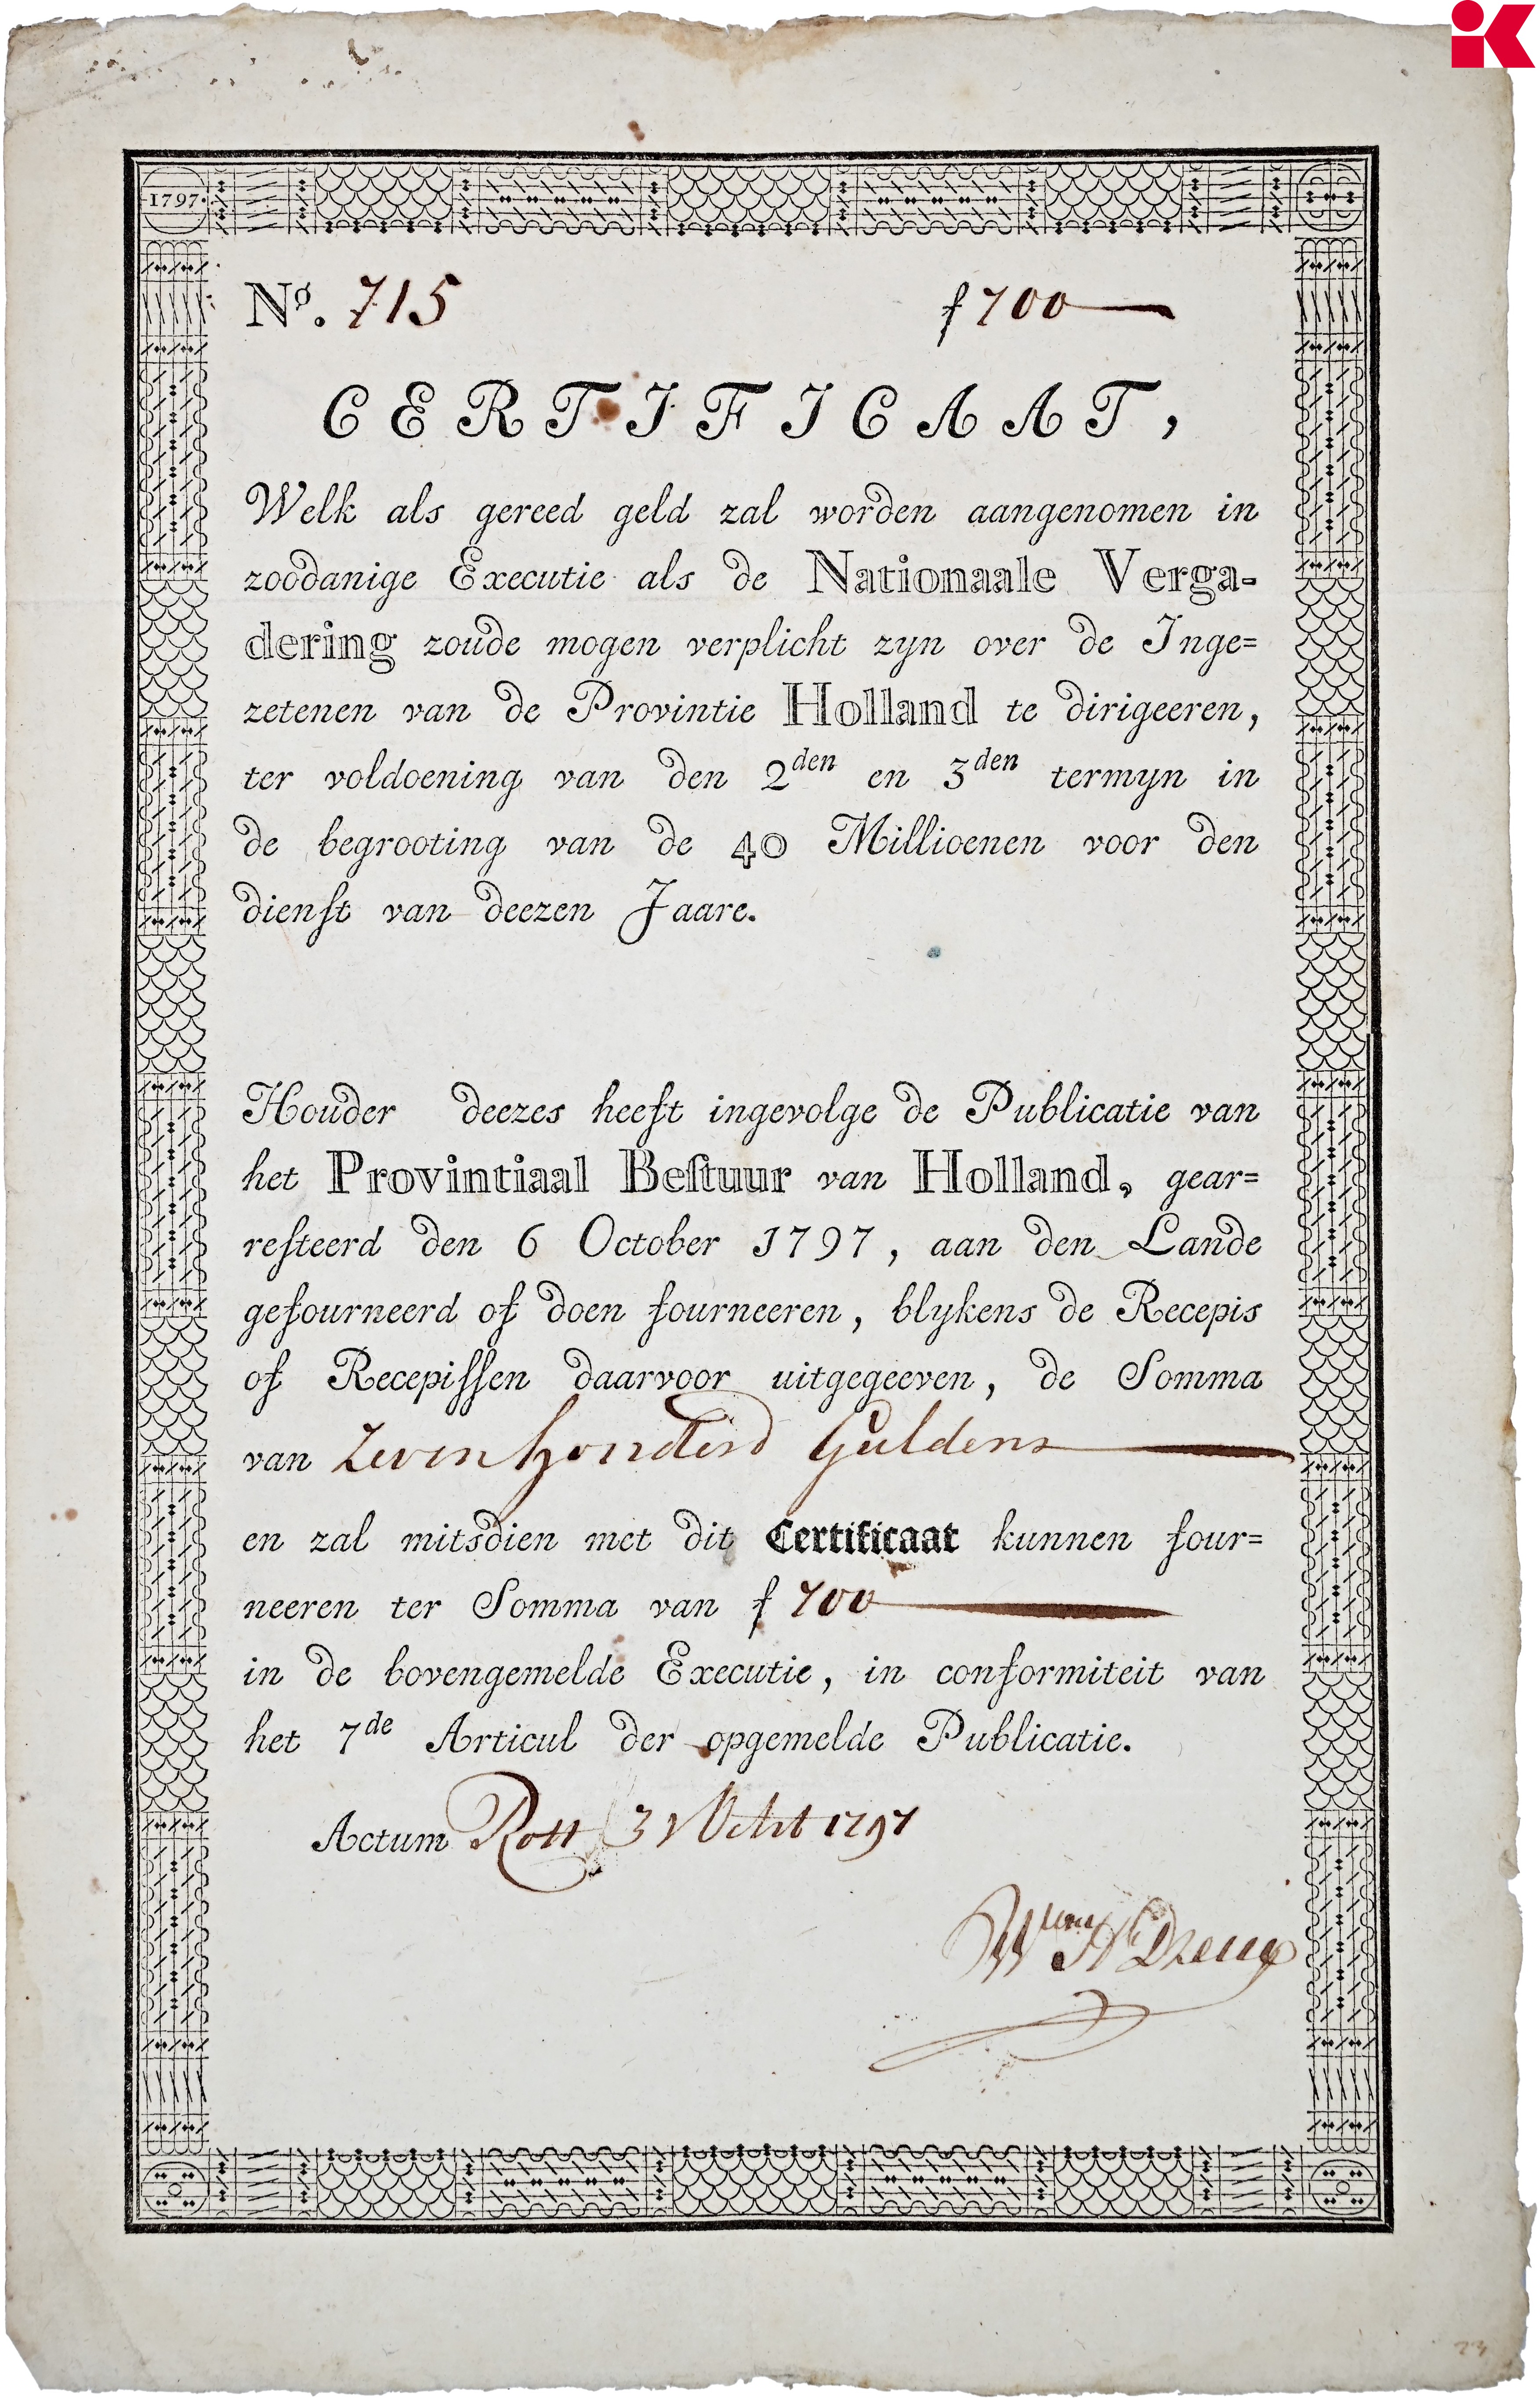 1797.
Nº. 715 f 700
CERTIFICAAT,
Welk als gereed geld zal worden aangenomen in
zoodanige Executie als de Nationaale Verga-
dering zoude mogen verplicht zyn over de Inge=
zetenen van de Provintie Holland te dirigeeren,
ter voldoening van den 2den en 3den termyn in
de begrooting van de 40 Millioenen voor den
dienſt van deezen Jaare.
Houder deezes heeft ingevolge de Publicatie van
het Provintiaal Beſtuur van Holland, gear=
reſteerd den 6 October 1797, aan den Lande
gefourneerd of doen fourneeren, blykens de Recepis
of Recepiſſen daarvoor uitgegeeven, de Somma
van Zevenhonderd Guldens
en zal mitsdien met dit Certificaat kunnen four=
neeren ter Somma van f 700
in de bovengemelde Executie, in conformiteit van
het 7de Articul der opgemelde Publicatie.
Actum Rott 31 1797
Wm
23